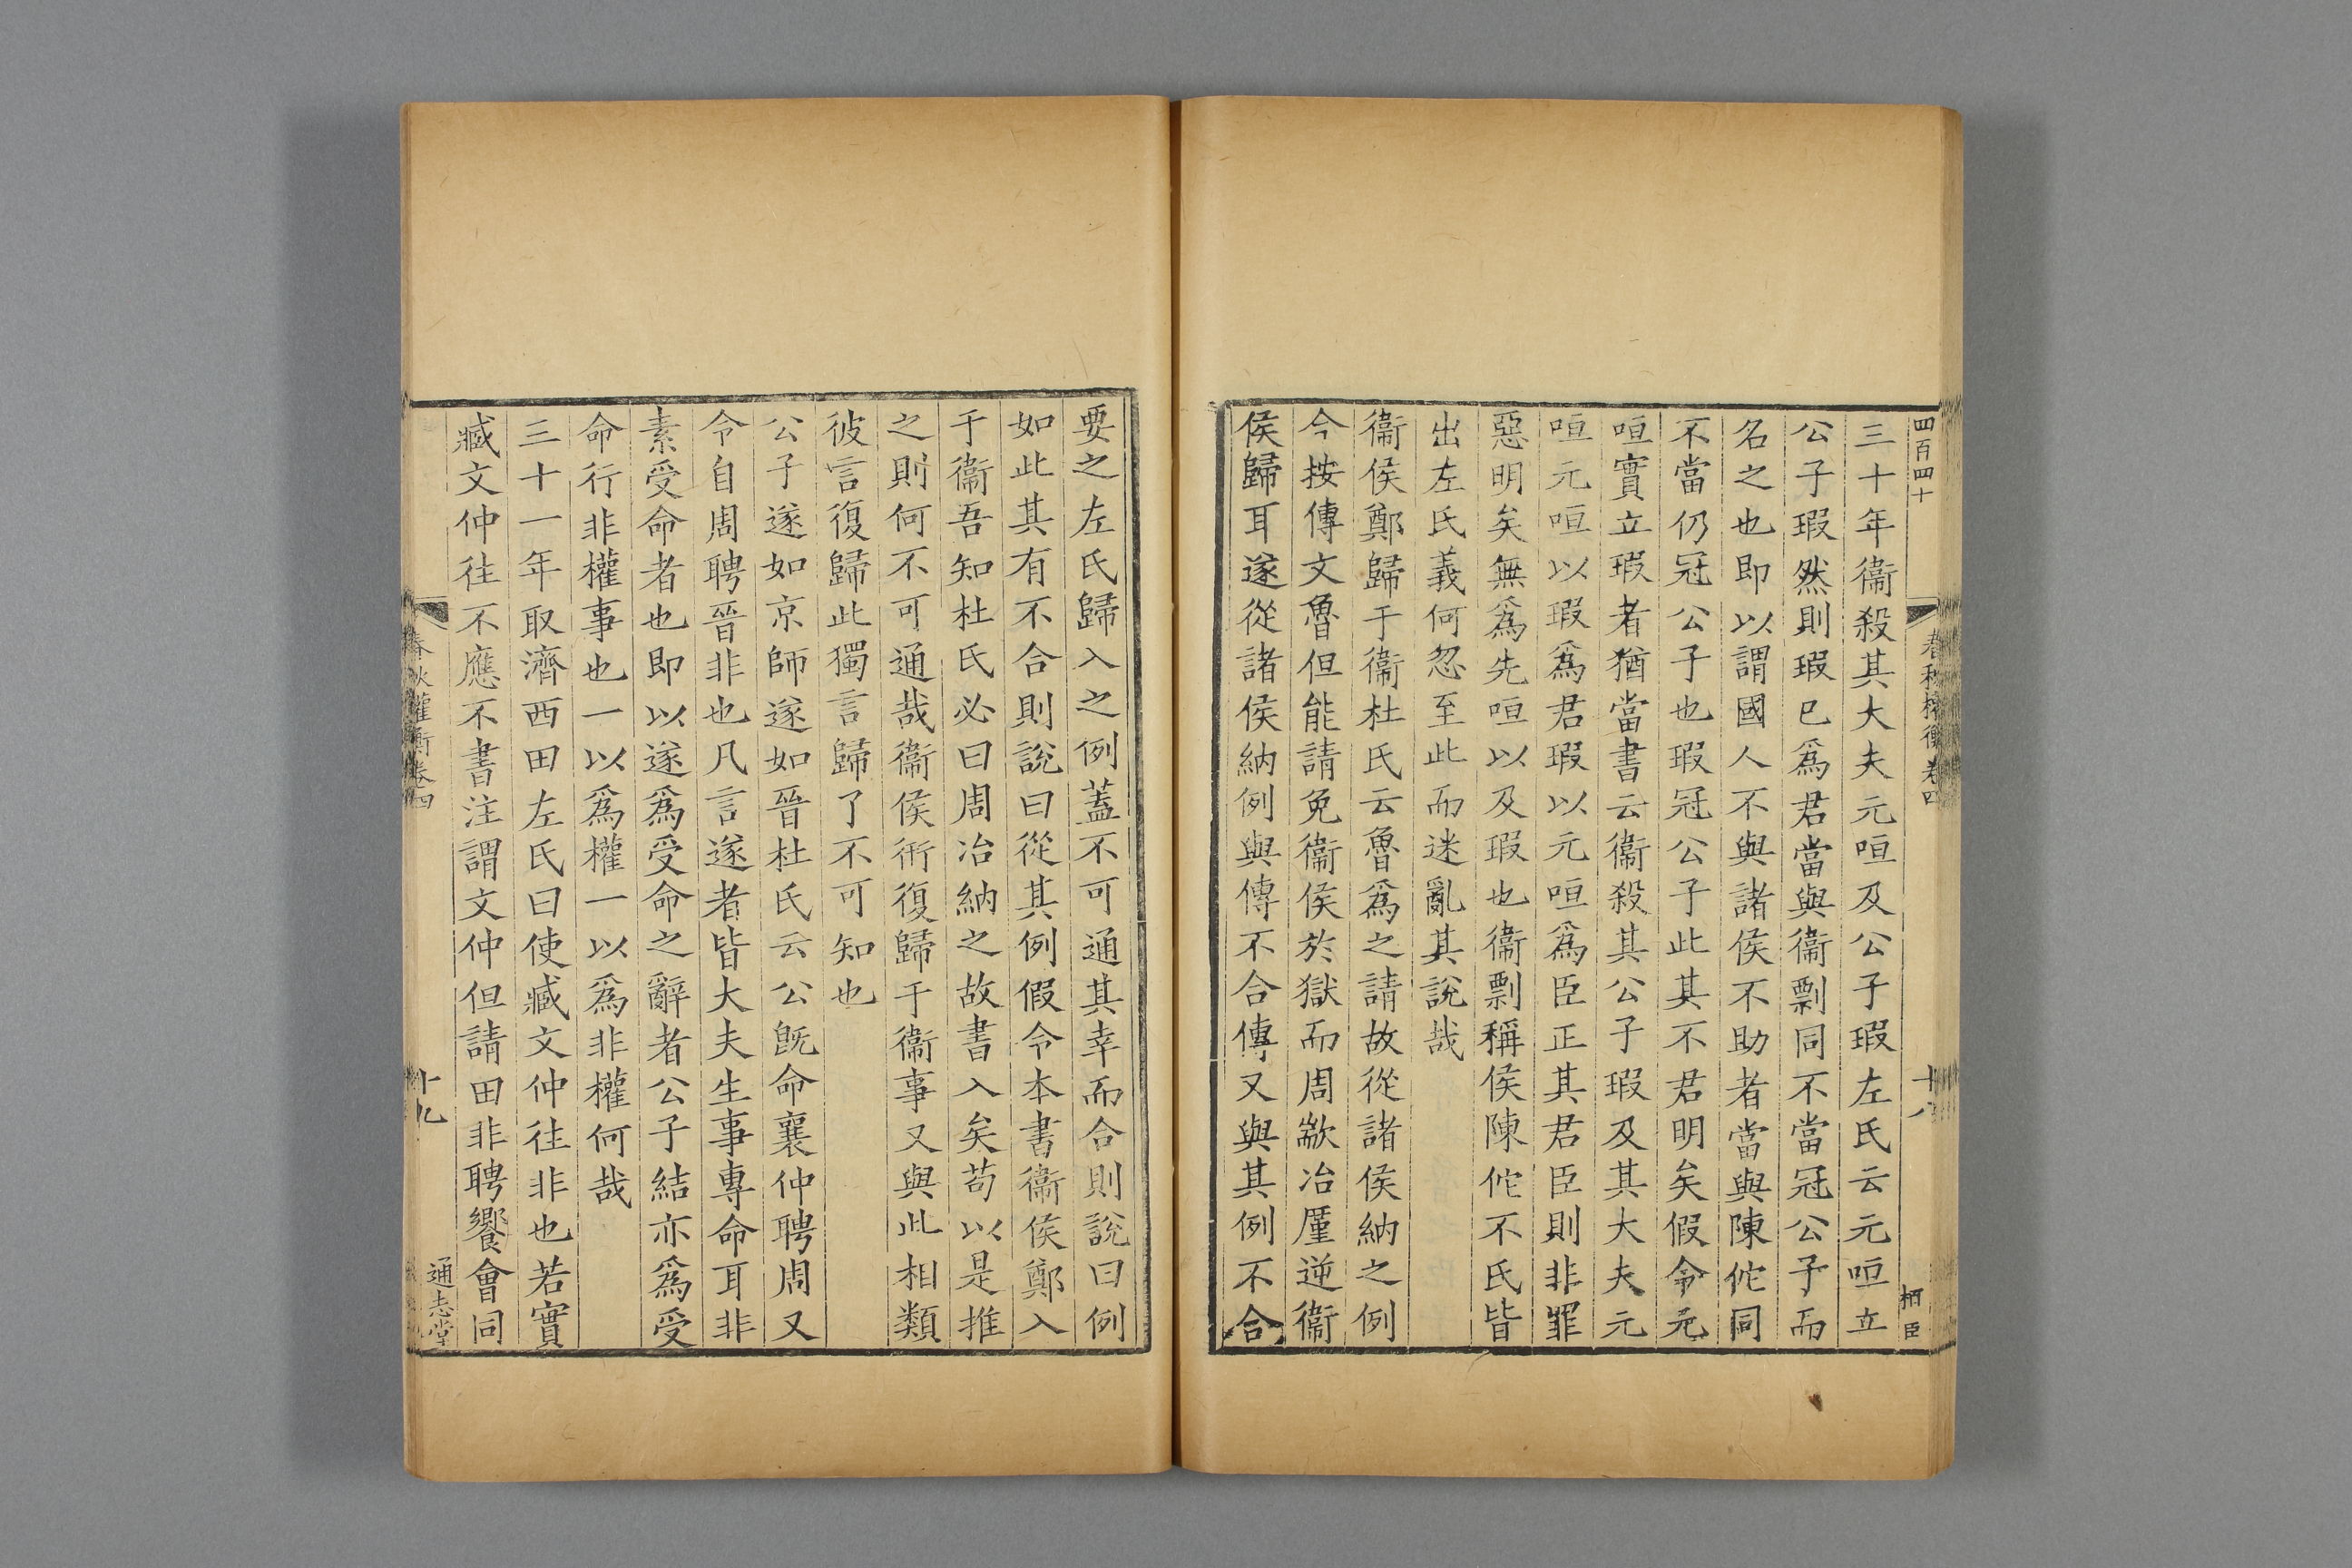 四百四十
春秋權衡卷四
十八
栢臣
三十年衞殺其大夫元咺及公子瑕左氏云元咺立
公子瑕然則瑕已爲君當與衞剽同不當冠公子而
名之也即以謂國人不與諸侯不助者當與陳佗同
不當仍冠公子也瑕冠公子此其不君明矣假令元
咺實立瑕者猶當書云衞殺其公子瑕及其大夫元
咺元咺以瑕爲君瑕以元咺爲臣正其君臣則非罪
惡明矣無爲先咺以及瑕也衞剽稱侯陳佗不氏皆
出左氏義何忽至此而迷亂其說哉
衞侯鄭歸于衞杜氏云魯爲之請故從諸侯納之例
今按傳文魯但能請免衞侯於獄而周歂冶廑逆衞
侯歸耳遂從諸侯納例與傳不合傳又與其例不合
要之左氏歸入之例蓋不可通其幸而合則說曰例
如此其有不合則說曰從其例假令本書衞侯鄭入
于衞吾知杜氏必曰周冶納之故書入矣苟以是推
之則何不可通哉衞侯衎復歸于衞事又與此相類
彼言復歸此獨言歸了不可知也
公子遂如京師遂如晉杜氏云公旣命襄仲聘周又
令自周聘晉非也凡言遂者皆大夫生事專命耳非
素受命者也即以遂爲受命之辭者公子結亦爲受
命行非權事也一以爲權一以爲非權何哉
三十一年取濟西田左氏曰使臧文仲往非也若實
臧文仲往不應不書注謂文仲但請田非聘饗會同
春秋權衡卷四
十九
通志堂